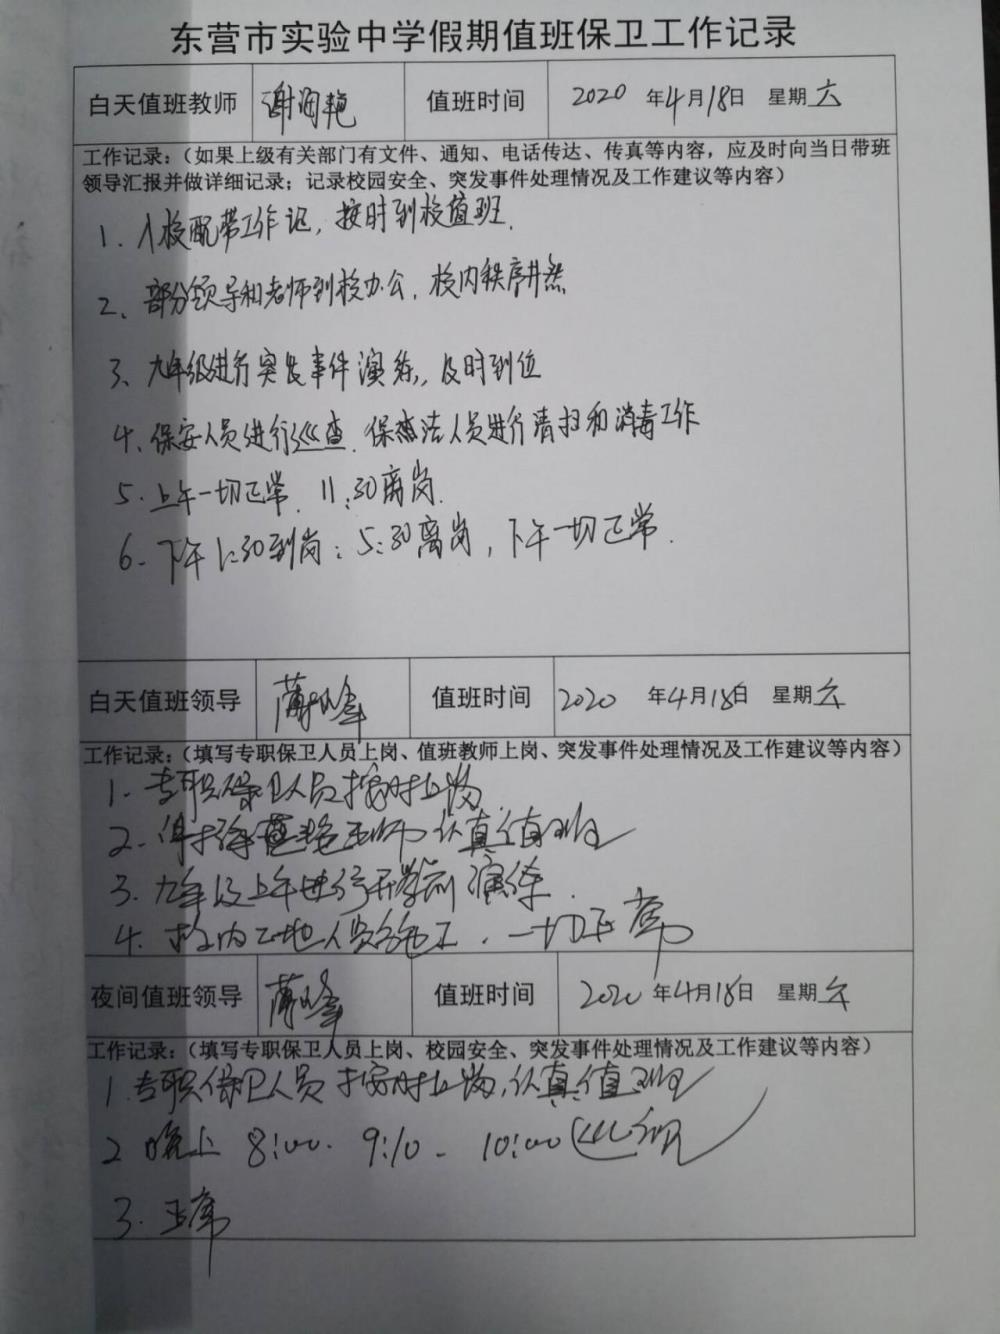 东营市实验中学假期值班保卫工作记录
白天值班教师 谢润艳 值班时间 2020 年4月18日 星期六
工作记录：（如果上级有关部门有文件、通知、电话传达、传真等内容，应及时向当日带班
领导汇报并做详细记录；记录校园安全、突发事件处理情况及工作建议等内容）
1、入校配带工作记，按时到校值班.
2、部分领导和老师到校办公，校内秩序井然
3、九年级进行突发事件演练，及时到位
4、保安人员进行巡查.保洁人员进行清扫和消毒工作
5.上午一切正常. 11:30离岗.
6.下午1:30到岗；5:30离岗，下午一切正常.
白天值班领导 值班时间 2020 年4月18日 星期六
工作记录：（填写专职保卫人员上岗、值班教师上岗、突发事件处理情况及工作建议等内容）
1.专职保卫人员按时上岗
2. 老师认真值班
3.九年级上午进行开学前演练.
4.校内工地人员 工.一切正常
夜间值班领导 值班时间 2020 年4月18日 星期六
工作记录：（填写专职保卫人员上岗、校园安全、突发事件处理情况及工作建议等内容）
1.专职保卫人员按时上岗,认真值班
2 晚上 8:00. 9:10. 10:00 巡视
3.正常